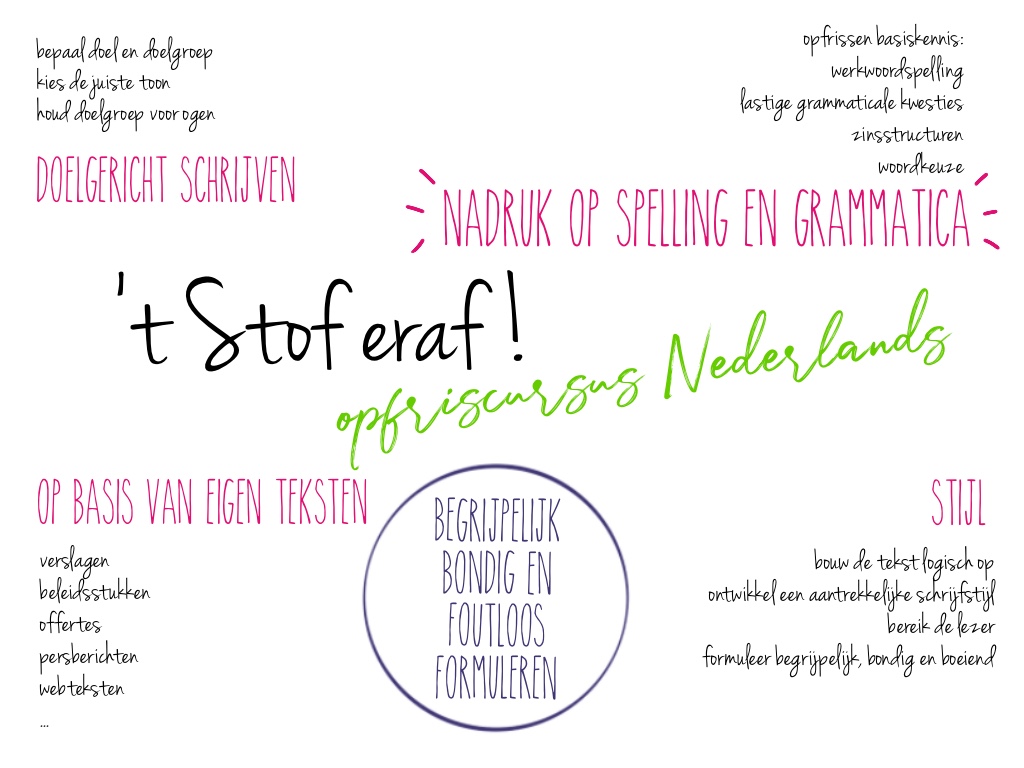 bepaal doel en doelgroep
kies de juiste toon
houd doelgroep voor ogen
DOELGERICHT SCHRIJVEN
opfrissen basiskennis:
werkwoordspelling
lastige grammaticale kwesties
zinsstructuren
woordkeuze
NADRUK OP SPELLING EN GRAMMATICA
't Stof eraf!
opfriscursus Nederlands
OP BASIS VAN EIGEN TEKSTEN
verslagen
beleidsstukken
offertes
persberichten
webteksten
...
BEGRIJPELIJK
BONDIG EN
FOUTLOOS
FORMULEREN
STIJL
bouw de tekst logisch op
ontwikkel een aantrekkelijke schrijfstijl
bereik de lezer
formuleer begrijpelijk, bondig en boeiend